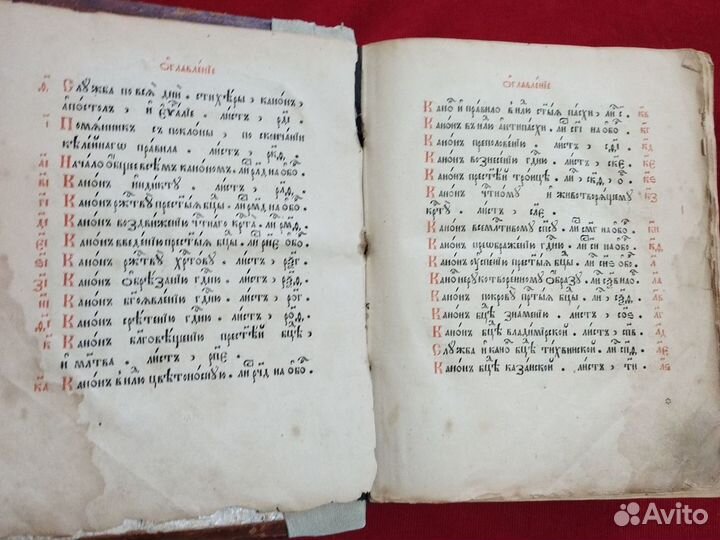 Ѻ҆главле́нїе
Слꙋ́жба повсѧ̀ дни̑ . стихе́ры , кано́нъ ,
а҆по́столъ , и҆ є҆ѵⷢ҇лїе . ли́стъ ,
і҃ Помѧ́нникъ с̾ покло́ны , по сконча́нїи
келе́йнагѡ пра́вила . ли́стъ ,
а҃і Нача́ло ѻ҆́бщее всѣ́мъ кано́номъ . ли на ѻ҆бо .
в҃і Кано́нъ и҆нди́ктꙋ . ли́стъ ,
г҃і Кано́нъ ржⷭ҇твꙋ̀ прест҃ы́ѧ бц҃ы . ли на ѻ҆бо
д҃і Кано́нъ воздви́женїю чтⷭ҇на́го крⷭ҇та̀ . ли
є҃і Кано́нъ введе́нїю прест҃ы́ѧ бц҃ы . ли ѻ҆бо
ѕ҃і Кано́нъ ржⷭ҇твꙋ̀ хрⷭ҇то́вꙋ . ли́стъ ,
з҃і Кано́нъ ѻ҆брѣ́занїю гдⷭ҇ню . ли́стъ ,
и҃і Кано́нъ бг҃оѧвле́нїю гдⷭ҇ню . ли́стъ , рѻ҃г
ѳ҃і Кано́нъ срѣ́тенїю гдⷭ҇ню . ли́стъ ,
к҃ Кано́нъ бл҃говѣ́щенїю прест҃ѣ́й бц҃ѣ ,
и҆ мл҃тва . ли́стъ , рп҃є .
к҃а Кано́нъ в̾ нⷣлю цвѣтоно́снꙋю . ли на ѻ҆бо .
Ѻ҆главле́нїе
Кано́ и҆ пра́вило в̾ нⷣлю ст҃ы́ѧ па́схи , ли с҃ . к҃в
Кано́нъ в̾ нⷣлю а҆нтипа́схи . ли на ѻ҆бо . к҃г
Кано́нъ преполове́нїю . ли́стъ , к҃д
Кано́нъ вознесе́нїю гдⷭ҇ню . ли́стъ , ск҃є . к҃є
Кано́нъ прест҃ѣ́й тро́ицѣ . ли , ѻ҆ . к҃ѕ
Кано́нъ чтⷭ҇но́мꙋ и҆ животворѧ́щемꙋ к҃з
крⷭ҇тꙋ̀ . ли́стъ ,
Кано́нъ всемлⷭ҇тивомꙋ спⷭ҇ꙋ . ли на ѻ҆бо . к҃и
Кано́нъ преѡбраже́нїю гдⷭ҇ню . ли на ѻ҆бо . к҃ѳ
Кано́нъ ᲂу҆спе́нїю прест҃ы́ѧ бц҃ы . ли ѻ҆бо . л҃
Кано́ нерꙋкотворе́нномꙋ ѻ҆́бразꙋ . ли л҃а
Кано́нъ покро́вꙋ прⷭ҇ты́ѧ бц҃ы . ли , л҃в
Кано́нъ бц҃ѣ зна́менїю . ли́стъ , л҃г
Кано́нъ бц҃ѣ влади́мїрской . ли́стъ , л҃д
Слꙋ́жба и҆ кано́ бц҃ѣ ти́хвинской . ли л҃є
Кано́нъ бц҃ѣ каза́нской . ли́стъ , т҃и . л҃ѕ
Avito